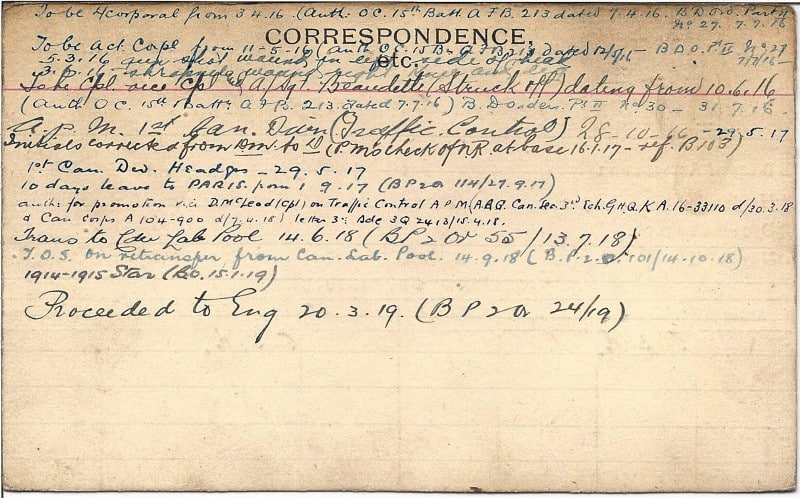 To be L/Corporal from 3.4.16. (Auth: O.C. 15th Batt. A.F.B. 213 dated 7.4.16. B.D. Ord. Part II
No 27. 7.7.16
CORRESPONDENCE,
To be Act. Corpl from 11-5-16 (Auth O.C. 15 Bn A.F.B. 213 dated 12/5/16 - B.D.O. Pt II No 27
7/7/16 -
etc.
5.3.16 gun shot wound in left side of head
3.5.16 shrapnel wound right
To be Cpl. vice Cpl & A/Sgt. Beaudette (Struck off) dating from 10.6.16
(Auth O.C. 15th Battn A.F.B. 213 dated 7.7.16) B.D. Orders Pt II No 30 - 31.7.16.
A.P.M. 1st Can. Divn (Traffic Control) 28-10-16 - 29.5.17
Initials corrected from DM. to D (P.M's check of N.R. at base 16.1.17 - ref. B103)
1st Can. Div. Headqrs - 29.5.17
10 days leave to PARIS from 1.9.17 (BP2o 114/27.9.17)
auth: for promotion via D. McLeod (Cpl) on Traffic Control A.P.M. (A.A.G. Can. Sec. 3rd Ech. G.H.Q. K.A. 16-33110 d/30.3.18
& Can Corps A 104-900 d/7.4.18) letter 3rd Bde 3Q 2413/15.4.18.
Trans to Cdn Lab Pool 14.6.18 (BP2 Or 55/13.7.18)
T.O.S. on retransfer from Can. Lab. Pool. 14.9.18 (B.P. 2.O. 101/14.10.18)
1914-1915 Star (R.O. 15.1.19)
Proceeded to Eng 20.3.19. (BP2o 24/19)